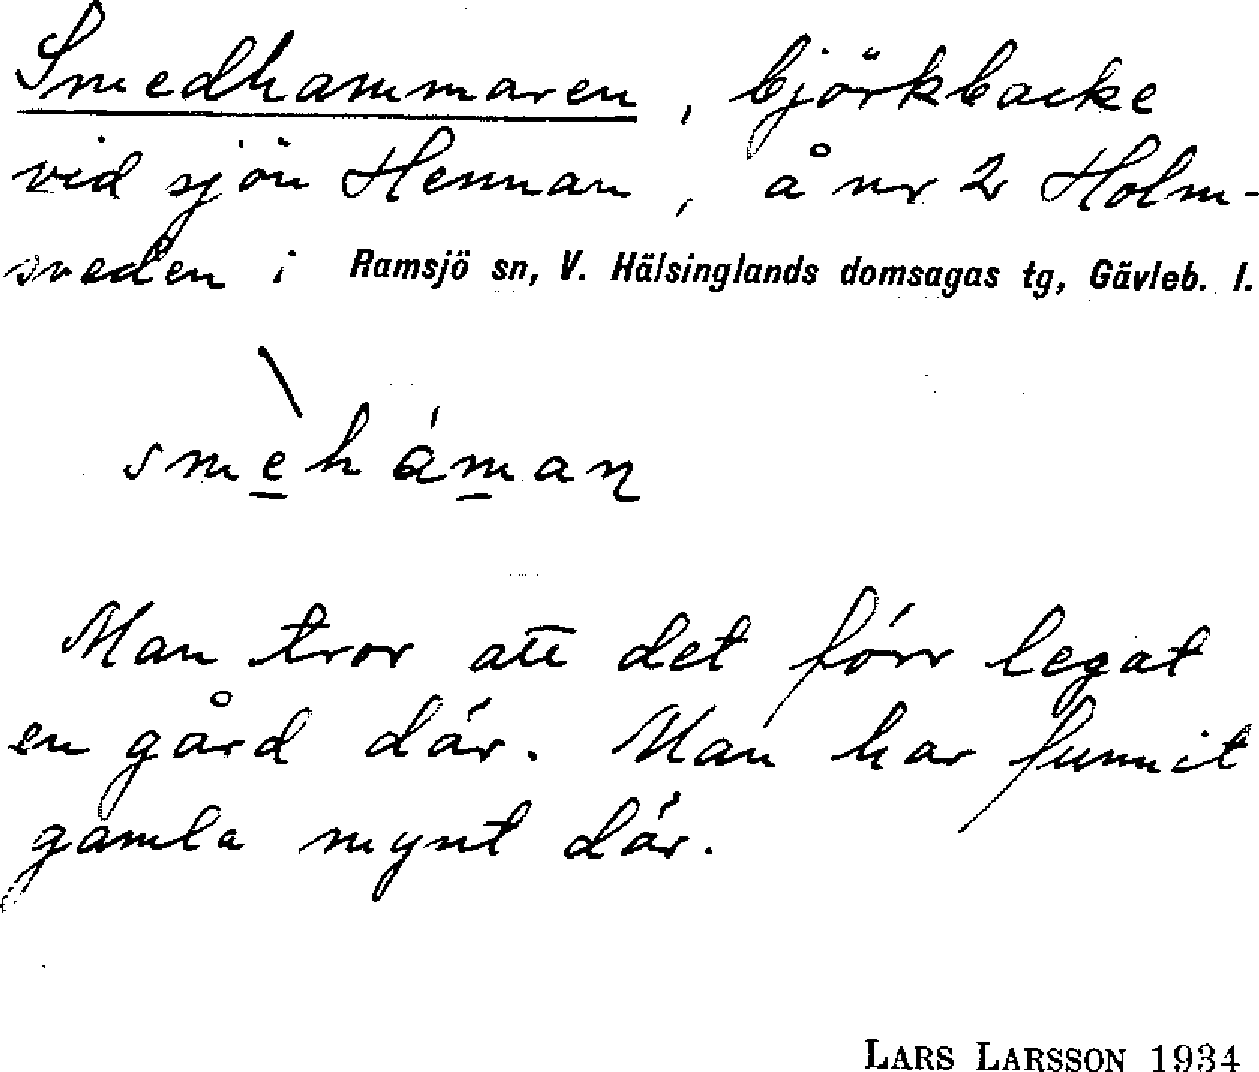 Smedhammaren, björkbacke
vid sjön Hennan, å nr 2 Holm-
sveden i Ramsjö sn, V. Hälsinglands domsagas tg, Gävleb. l.
smèháman
Man tror att det förr legat
en gård där. Man har funnit
gamla mynt där.
LARS LARSSON 1934